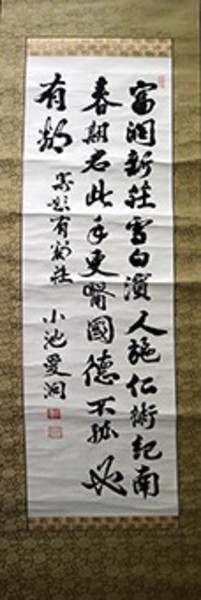 富潤新莊雪白濱人施仁術記南
春期君此手更醫國德不孤必
有鄰
寄題有鄰莊
小池曼洞